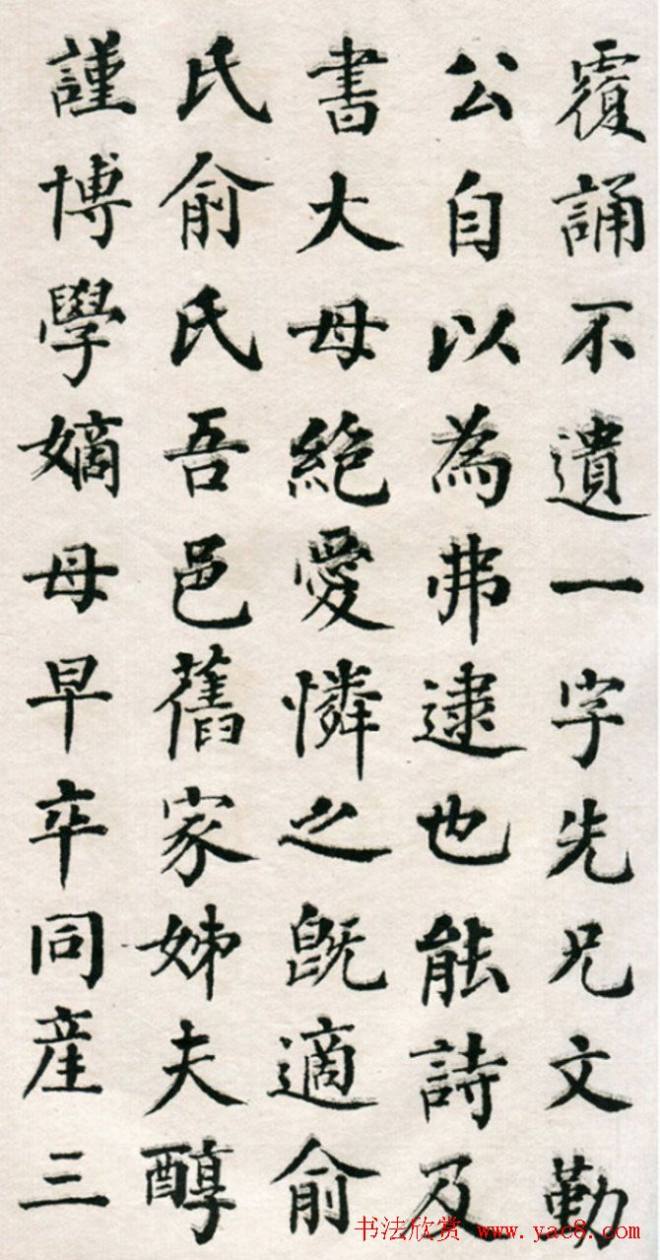 覆誦不遺一字先兄文勤
公自以為弗逮也能詩及
書大母絕愛憐之既適俞
氏俞氏吾邑舊家姊夫醇
謹博學嫡母早卒同産三
书法欣赏 www.yac8.com